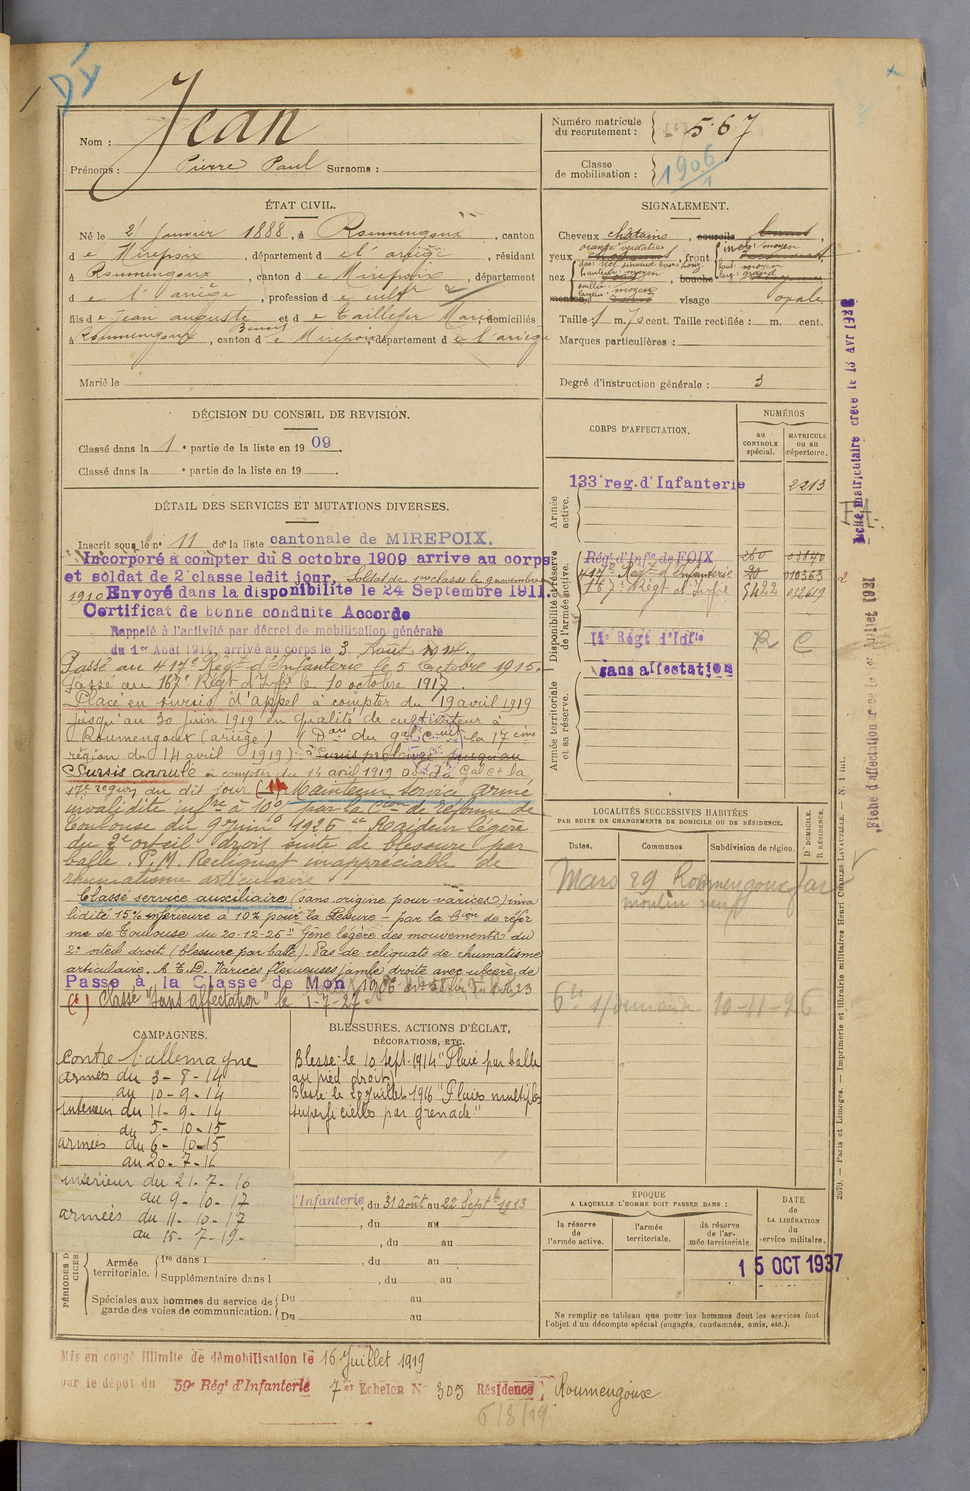 Nom : Jean
Prénoms : Pierre Paul Surnoms :
Numéro matricule du recrutement : 567
Classe de mobilisation : 1906
ÉTAT CIVIL.
Né le 2 janvier 1888, à Roumengoux, canton
de Mirepoix, département de l'ariège, résidant
à Roumengoux, canton de Mirepoix, département
de l'ariège, profession de cultr
fils de Jean auguste et de Taillefer Marie domiciliés
à Roumengoux, canton de Mirepoix, département de l'ariège
Marié le
SIGNALEMENT.
Cheveux châtains, sourcils
yeux orange verdâtre, front incl : moyen
haut : moyen
larg : grand
nez dos : rect. sinueux base : horiz.
hauteur : moyen
saillie : moyen
largeur : moyen
bouche
menton, visage ovale
Taille 1 m. 70 cent. Taille rectifiée : m. cent.
Marques particulières :
Degré d'instruction générale : 3
DÉCISION DU CONSEIL DE REVISION.
Classé dans la 1e partie de la liste en 1909.
Classé dans la e partie de la liste en 19 .
DÉTAIL DES SERVICES ET MUTATIONS DIVERSES.
Inscrit sous le n° 11 de la liste cantonale de MIREPOIX.
Incorporé à compter du 8 octobre 1909 arrive au corps
et soldat de 2e classe ledit jour. Soldat de 1ère classe le 9 novembre
1910 Envoyé dans la disponibilité le 24 Septembre 1911.
Certificat de bonne conduite Accordé
Rappelé à l'activité par décret de mobilisation générale
du 1er Août 1914, arrivé au corps le 3 Août 1914.
Passé au 417e Régt d'Infanterie le 5 Octobre 1915.
Passé au 167e Régt d'Infie le 10 octobre 1917.
Placé en sursis d'appel à compter du 19 avril 1919
jusqu'au 30 juin 1919 en qualité de cultivateur à
Roumengoux (ariège) (Don du gal Ct la 17eme
région du 14 avril 1919) Sursis prolongé jusqu'au
Sursis annulé à compter du 14 avril 1919 Don du Gal Ct la
17e région du dit jour (1) Maintenu service armé
invalidité infre à 10% par la Con de réforme de
Toulouse du 9 juin 1926 Raideur légère
du 2e orteil droit suite de blessure par
balle. P.M. Reliquat inappréciable de
rhumatisme articulaire
Classé service auxiliaire (sans origine pour varices) inva
lidité 15% inférieure à 10% pour la blessure - par la Con de réfor
me de Toulouse du 20-12-26 "Gêne légère des mouvements du
2e orteil droit (blessure par balle). Pas de reliquats de rhumatisme
articulaire. A.T.D. Varices flexueuses jambe droite avec ulcère de
Passe à la Classe de Mon 1906
(1) Classé "Sans affectation" le 1-7-27.
CORPS D'AFFECTATION.
NUMÉROS
au CONTROLE spécial.
MATRICULE ou au répertoire.
Armée active.
133e reg. d'Infanterie 2213
Disponibilité et réserve de l'armée active.
Régt d'Infie de FOIX 260 03640
417e Régt d'Infanterie 90 010363
167e Régt d'Infie 5422 032619
14e Régt d'Infie R C
sans affectation
Armée territoriale et sa réserve.
LOCALITÉS SUCCESSIVES HABITÉES
PAR SUITE DE CHANGEMENTS DE DOMICILE OU DE RÉSIDENCE.
Dates. Communes. Subdivision de région. D. DOMICILE. R. RÉSIDENCE.
Mars 29 Roumengoux
moulin neuf
10-11-26
CAMPAGNES.
contre l'allemagne
armées du 3-8-14
au 10-9-14
Intérieur du 11-9-14
du 5-10-15
armées du 6-10-15
au 20-7-16
intérieur du 21-7-16
au 9-10-17
armées du 11-10-17
au 15-7-19-
BLESSURES, ACTIONS D'ÉCLAT,
DÉCORATIONS, ETC.
Blessé le 10 sept. 1914 "Plaie par balle
au pied droit"
Blessé le 20 Juillet 1916 "Plaies multiples
superficielles par grenade"
Infanterie, du 31 août au 22 Septbre 1913
, du au
, du au
PÉRIODES D
CICES
Armée territoriale. 1re dans l , du au
Supplémentaire dans l , du au
Spéciales aux hommes du service de garde des voies de communication. Du au
Du au
ÉPOQUE
A LAQUELLE L'HOMME DOIT PASSER DANS :
la réserve de l'armée active.
l'armée territoriale.
la réserve de l'armée territoriale.
DATE de LA LIBÉRATION du service militaire.
15 OCT 1937
Ne remplir ce tableau que pour les hommes dont les services font
l'objet d'un décompte spécial (engagés, condamnés, omis, etc.).
Mis en congé illimité de démobilisation le 16 Juillet 1919
par le dépôt du 59e Régt d'Infanterie 7e Echelon N° 303 Résidence Roumengoux
6/8/19
2670. — Paris et Limoges. — Imprimerie et librairie militaires Henri CHARLES-LAVAUZELLE. — N. 1 int.